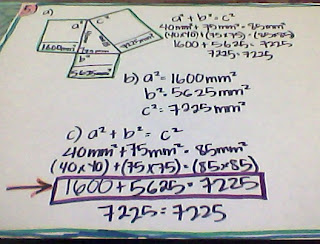 5) a)
a² + b² = c²
40mm² + 75mm² = 85mm²
(40x40) + (75x75) = (85x85)
1600 + 5625 = 7225
7225 = 7225
a²
c²
1600mm²
7225mm²
b²
5625mm²
b) a² = 1600mm²
b² = 5625mm²
c² = 7225mm²
c) a² + b² = c²
40mm² + 75mm² = 85mm²
(40x40) + (75x75) = (85x85)
1600 + 5625 = 7225
7225 = 7225